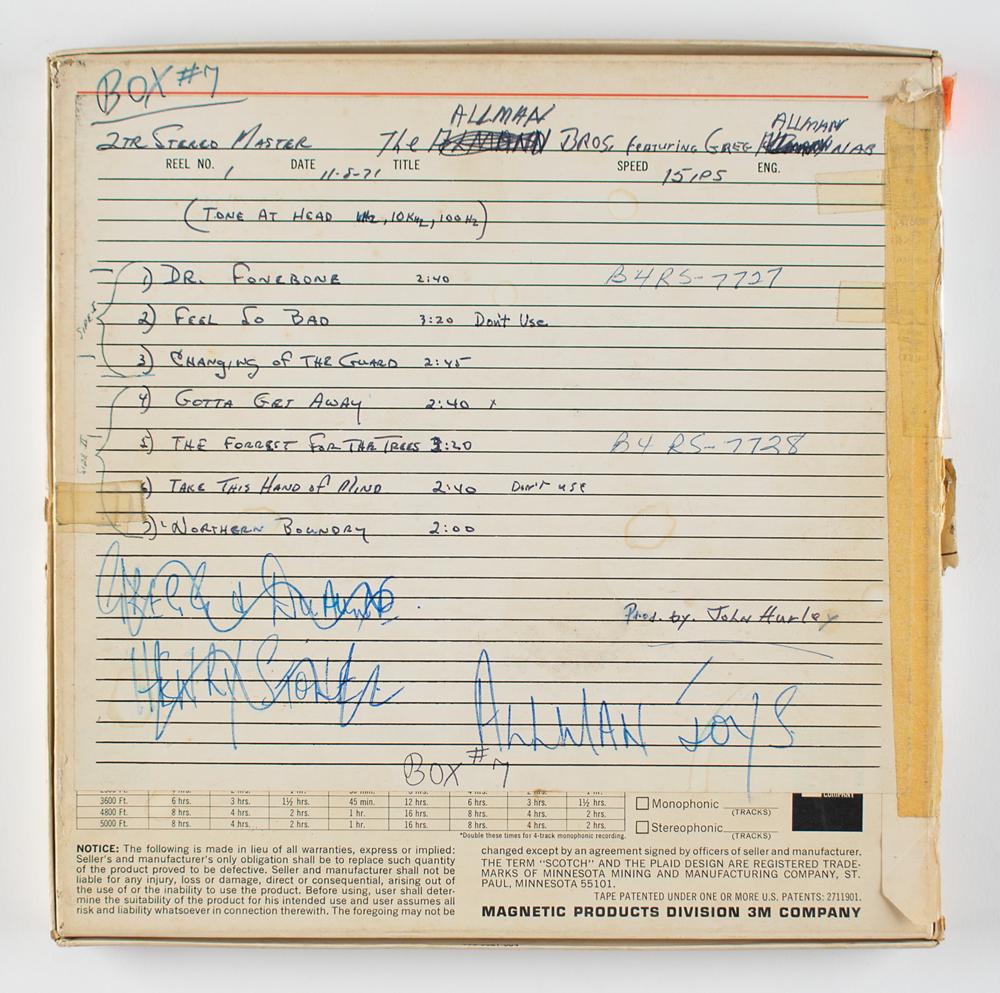 BOX #7
ALLMAN ALLMAN
2TR STEREO MASTER The BROS. FEATURING GREG NAB
REEL NO. 1 DATE 11-5-71 TITLE SPEED 15 IPS ENG.
(TONE AT HEAD KHz, 10KHz, 100Hz)
SIDE I
1) DR. FONEBONE 2:40 B4RS-7727
2) FEEL SO BAD 3:20 Don't Use
3) CHANGING OF THE GUARD 2:45
SIDE II
4) GOTTA GET AWAY 2:40 x
5) THE FORREST FOR THE TREES 3:20 B4RS-7728
6) TAKE THIS HAND OF MIND 2:40 DON'T USE
7) NORTHERN BOUNDRY 2:00
GREGG & DUANE
Prod. by. John Hurley
HENRY STONE
ALLMAN JOYS
BOX #7
3600 Ft. 6 hrs. 3 hrs. 1½ hrs. 45 min. 12 hrs. 6 hrs. 3 hrs. 1½ hrs.
4800 Ft. 8 hrs. 4 hrs. 2 hrs. 1 hr. 16 hrs. 8 hrs. 4 hrs. 2 hrs.
5000 Ft. 8 hrs. 4 hrs. 2 hrs. 1 hr. 16 hrs. 8 hrs. 4 hrs. 2 hrs.
*Double these times for 4-track monophonic recording.
Monophonic (TRACKS)
Stereophonic (TRACKS)
COMPANY
NOTICE: The following is made in lieu of all warranties, express or implied:
Seller's and manufacturer's only obligation shall be to replace such quantity
of the product proved to be defective. Seller and manufacturer shall not be
liable for any injury, loss or damage, direct or consequential, arising out of
the use of or the inability to use the product. Before using, user shall deter-
mine the suitability of the product for his intended use and user assumes all
risk and liability whatsoever in connection therewith. The foregoing may not be
changed except by an agreement signed by officers of seller and manufacturer.
THE TERM "SCOTCH" AND THE PLAID DESIGN ARE REGISTERED TRADE-
MARKS OF MINNESOTA MINING AND MANUFACTURING COMPANY, ST.
PAUL, MINNESOTA 55101.
TAPE PATENTED UNDER ONE OR MORE U.S. PATENTS: 2711901.
MAGNETIC PRODUCTS DIVISION 3M COMPANY